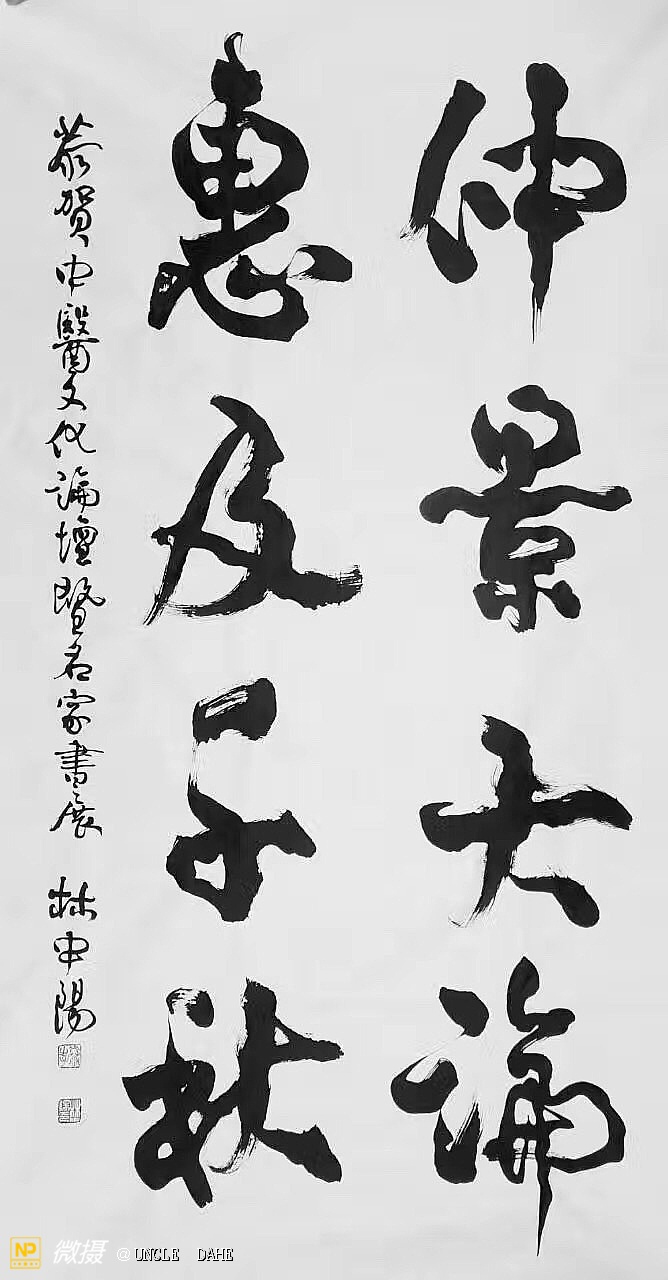 仲景大論
惠及千秋
恭賀中醫文化論壇暨名家書展 林中陽
NP 微摄 @UNCLE DAHE